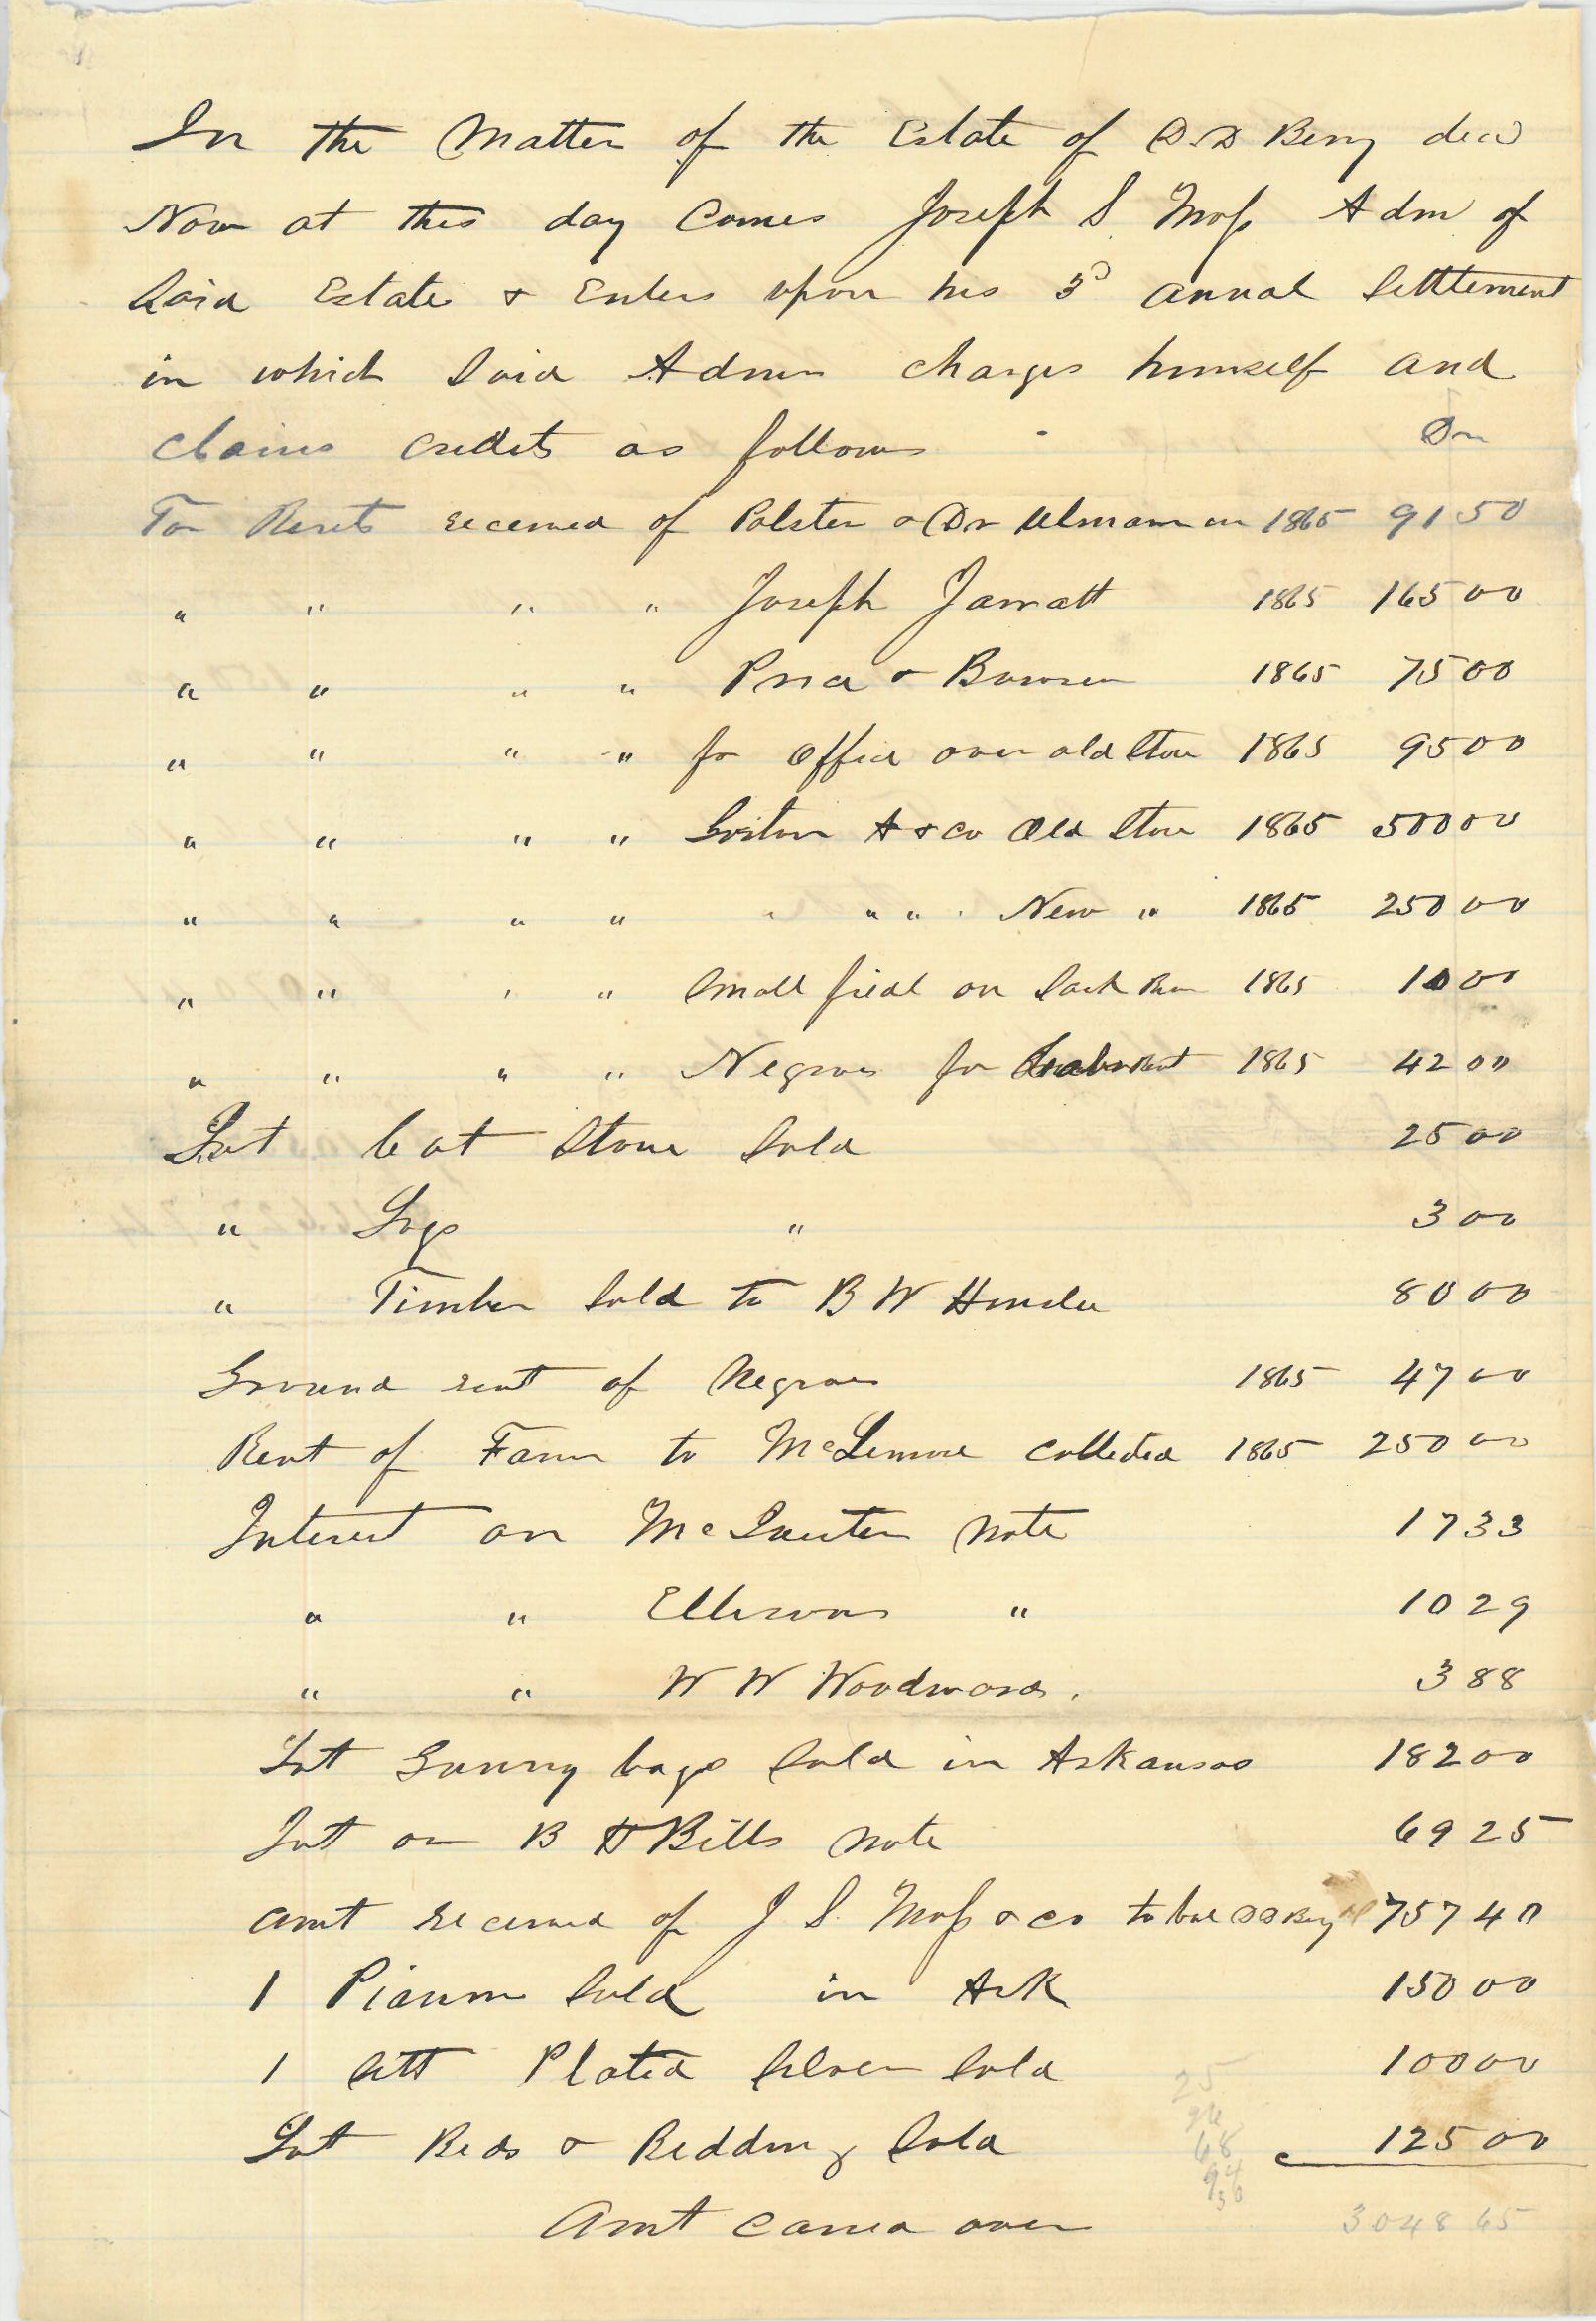 In the Matter of the Estate of D. D Berry decd
Now at this day Comes Joseph S. Moss Adm of
Said Estate & Enters upon his 3d annual Settlement
in which Said Admr charges himself and
claims credits as follows Dr
For Rents received of Polster & Dr Ulmann in 1865 91 50
" " " " Joseph Jarratt 1865 165 00
" " " " Price & Bowren 1865 75 00
" " " " for Office over old Store 1865 95 00
" " " " A & Co Old Store 1865 500 00
" " " " " " New " 1865 250 00
" " " " Small field on Sack 1865 10 00
" " " " Negroes for 1865 42 00
Lot Cut Stone Sold 25 00
" Logs " 3 00
" Timber Sold to B W 80 00
Ground rent of Negroes 1865 47 00
Rent of Farm to McLemore collected 1865 250 00
Interest on note 17 33
" " Ellisons " 10 29
" " W W Woodward. 3 88
Lot Gunny bags Sold in Arkansas 182 00
Int on B H Bills note 69 25
amt received of J S. Moss & co to bal D D Berry 757 40
1 Pianno Sold in Ark 150 00
1 Sett Plated Silver Sold 100 00
Lot Beds & Bedding Sold 125 00
Amt carried over 3048 65
25
68
94
30